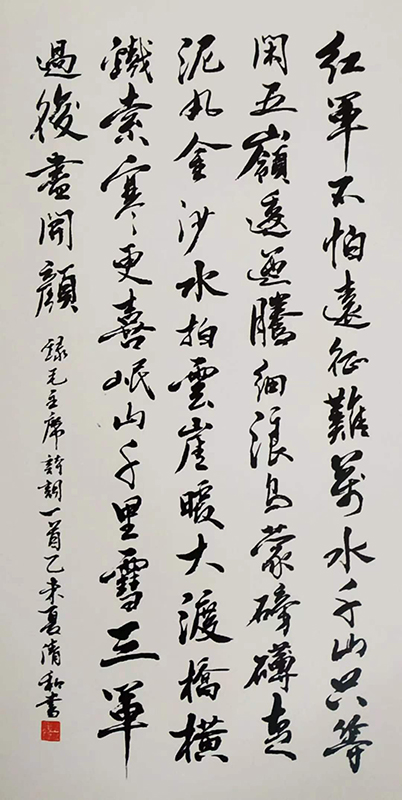 红军不怕遠征難萬水千山只等
闲五嶺逶迤騰细浪烏蒙磅礴走
泥丸金沙水拍雲崖暖大渡橋横
鐵索寒更喜岷山千里雪三軍
過後盡開顏
録毛主席詩詞一首乙未夏清和書